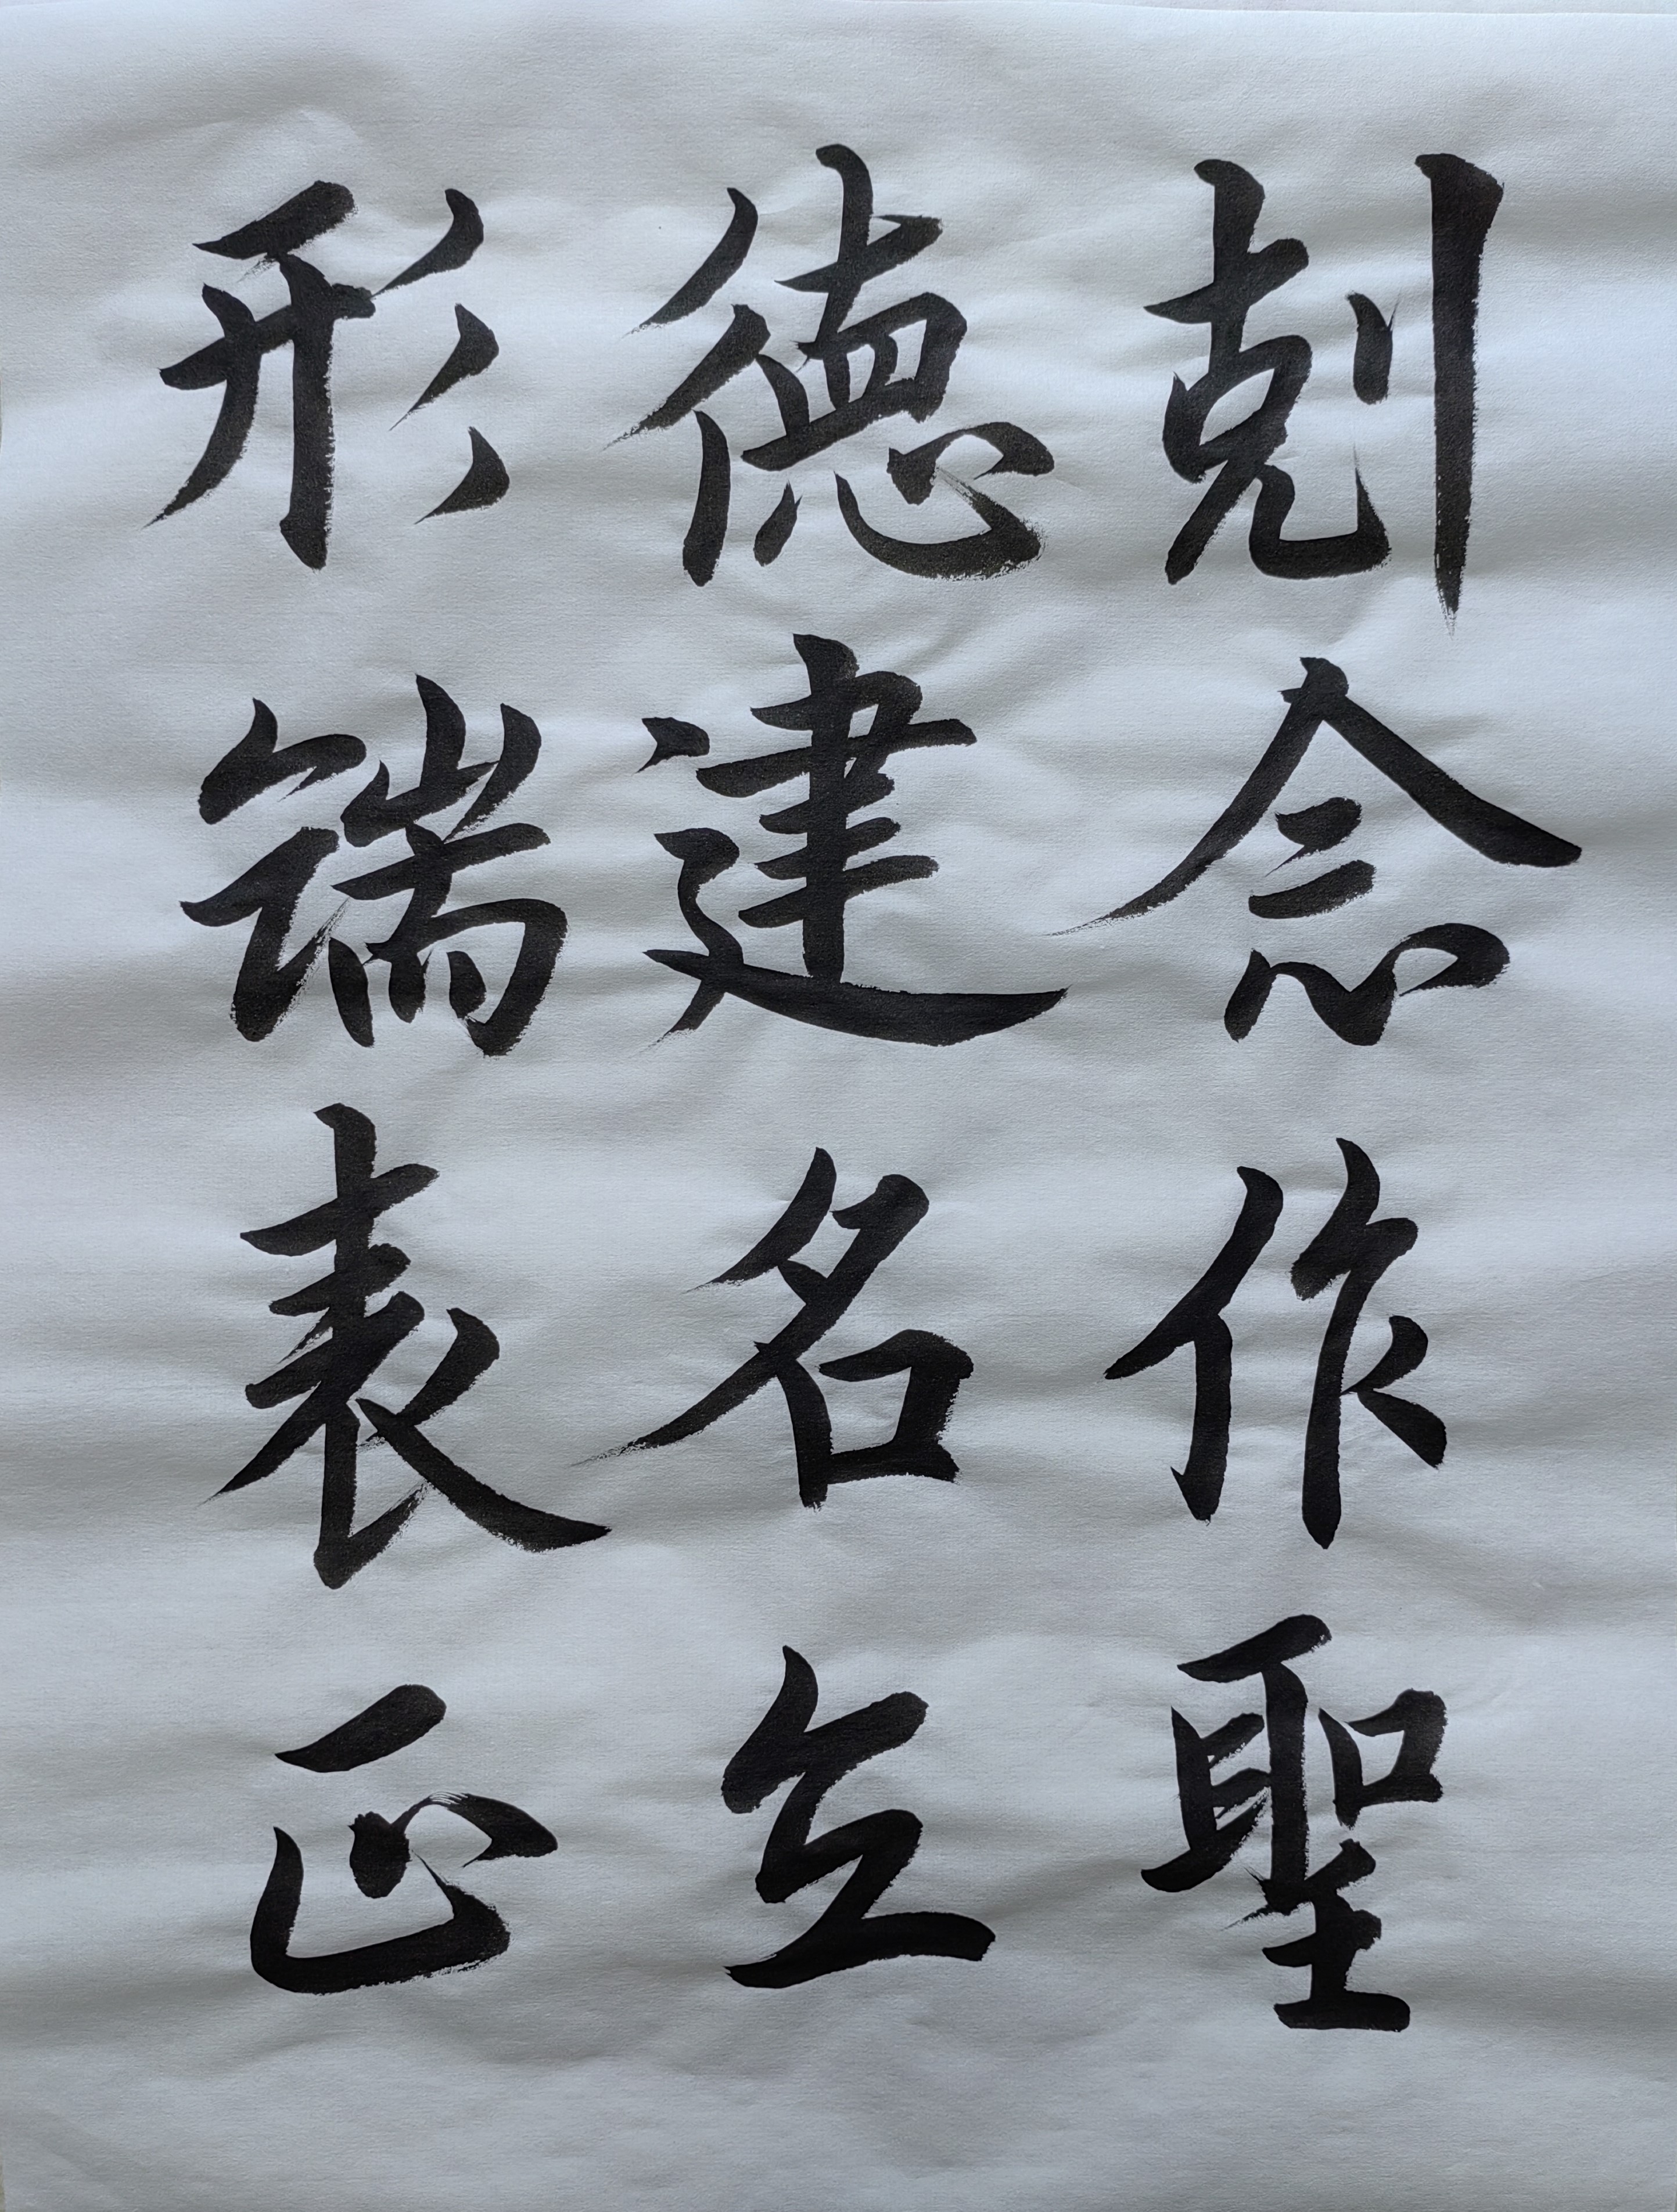 剋念作聖
德建名立
形端表正